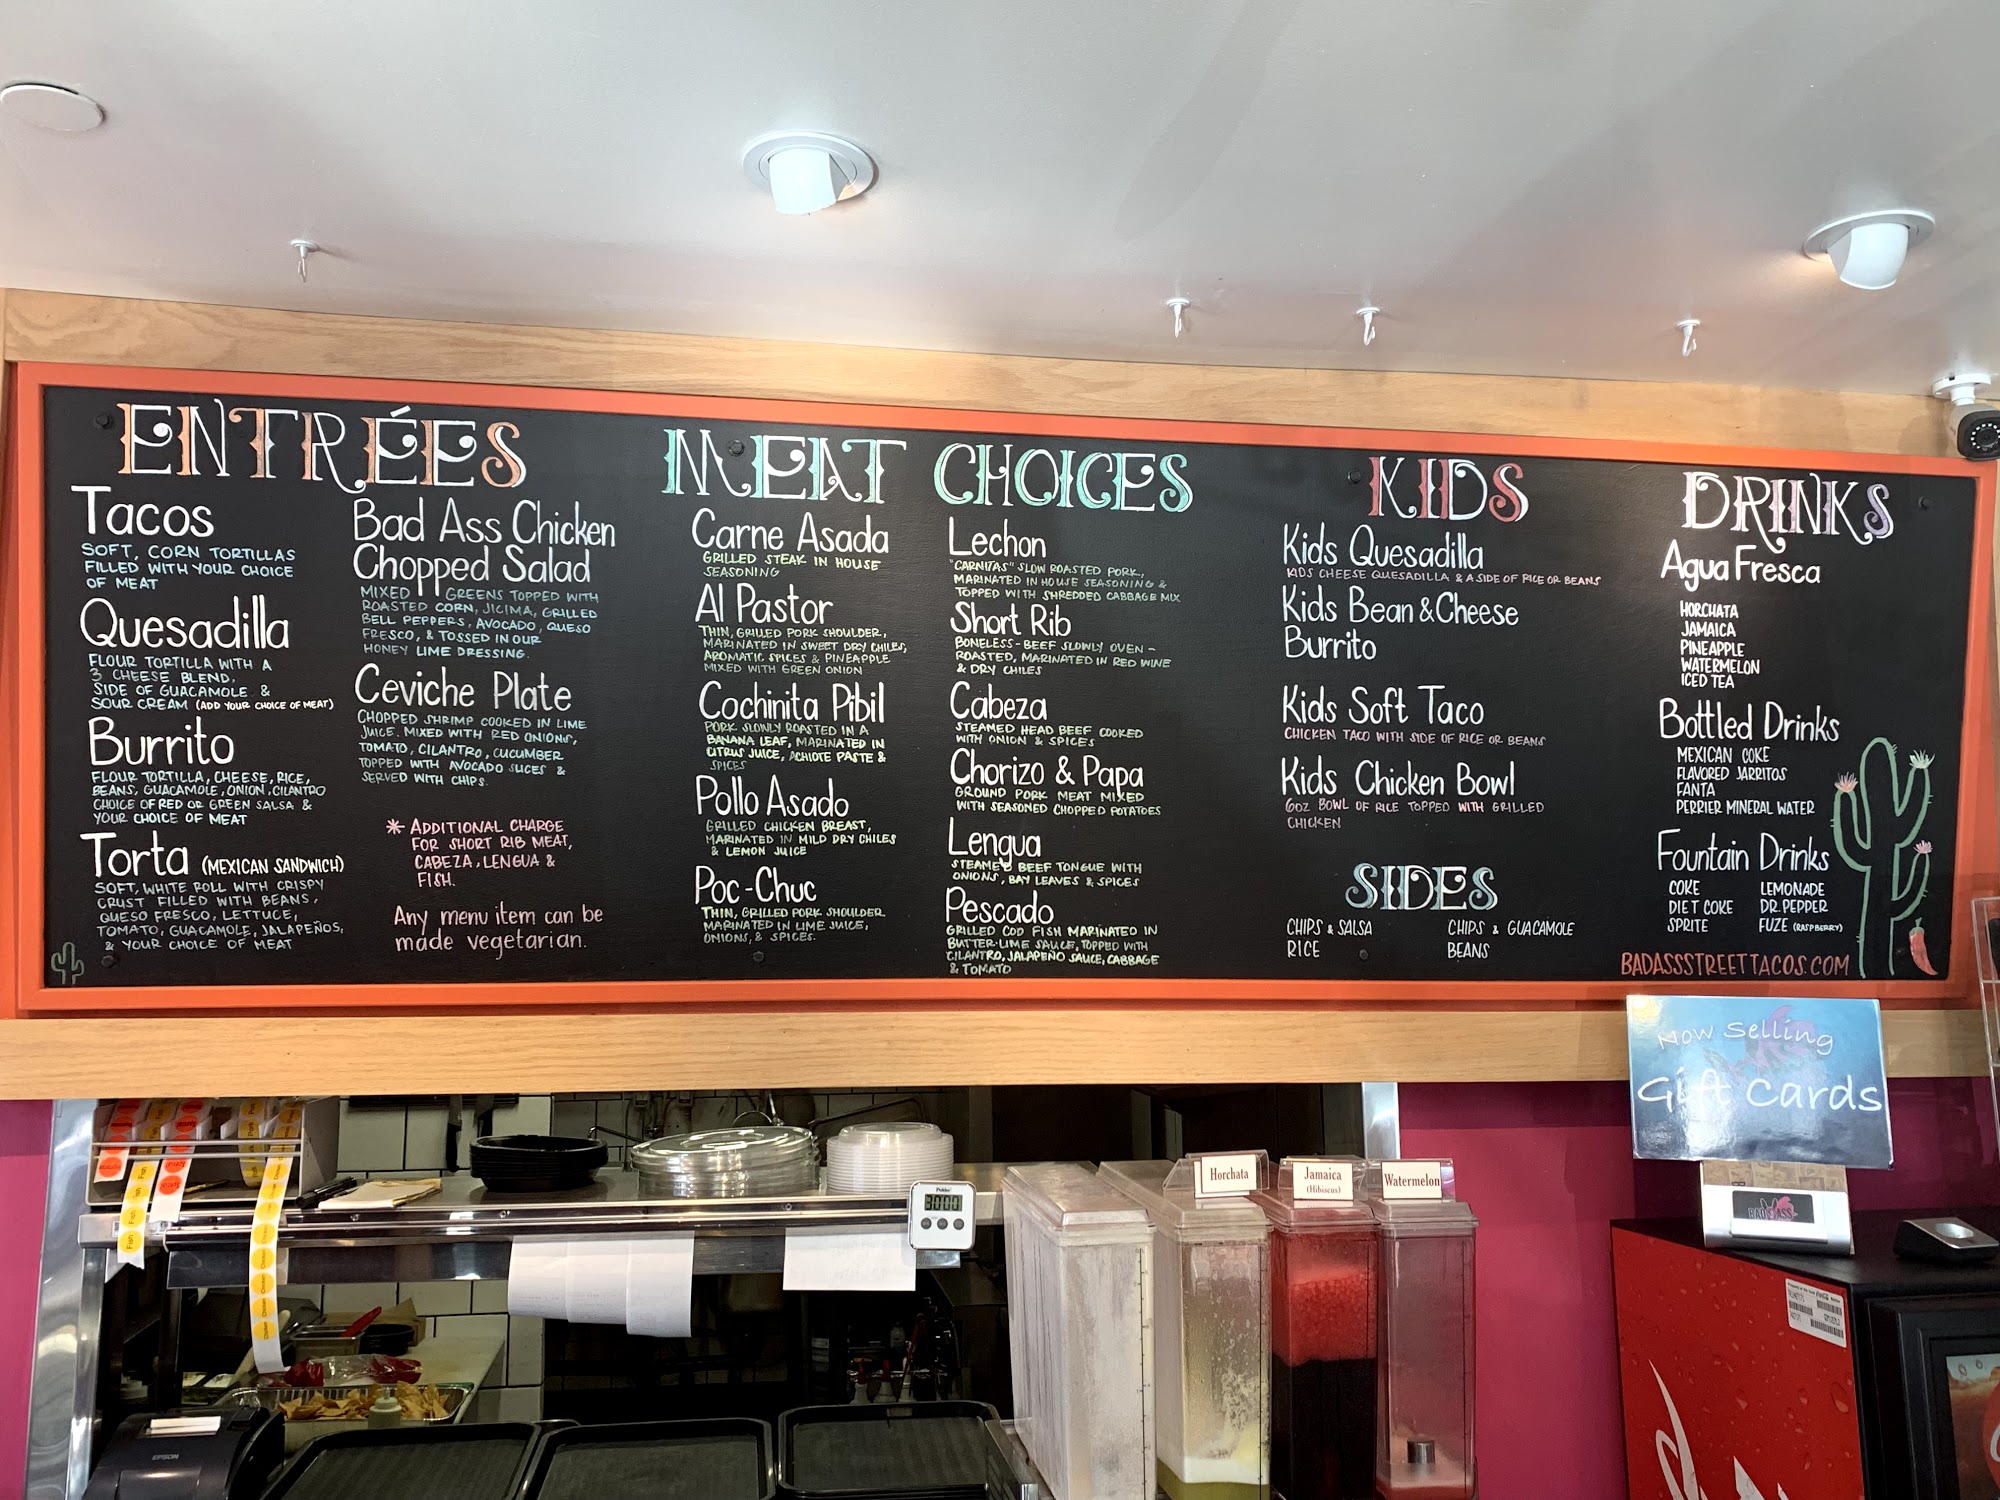 ENTRÉES
Tacos
SOFT, CORN TORTILLAS
FILLED WITH YOUR CHOICE
OF MEAT
Quesadilla
FLOUR TORTILLA WITH A
3 CHEESE BLEND,
SIDE OF GUACAMOLE &
SOUR CREAM (ADD YOUR CHOICE OF MEAT)
Burrito
FLOUR TORTILLA, CHEESE, RICE,
BEANS, GUACAMOLE, ONION, CILANTRO
CHOICE OF RED OR GREEN SALSA &
YOUR CHOICE OF MEAT
Torta (MEXICAN SANDWICH)
SOFT, WHITE ROLL WITH CRISPY
CRUST FILLED WITH BEANS,
QUESO FRESCO, LETTUCE,
TOMATO, GUACAMOLE, JALAPEÑOS,
& YOUR CHOICE OF MEAT
Bad Ass Chicken
Chopped Salad
MIXED GREENS TOPPED WITH
ROASTED CORN, JICIMA, GRILLED
BELL PEPPERS, AVOCADO, QUESO
FRESCO, & TOSSED IN OUR
HONEY LIME DRESSING.
Ceviche Plate
CHOPPED SHRIMP COOKED IN LIME
JUICE. MIXED WITH RED ONIONS,
TOMATO, CILANTRO, CUCUMBER
TOPPED WITH AVOCADO SLICES &
SERVED WITH CHIPS.
* ADDITIONAL CHARGE
FOR SHORT RIB MEAT,
CABEZA, LENGUA &
FISH.
Any menu item can be
made vegetarian.
MEAT CHOICES
Carne Asada
GRILLED STEAK IN HOUSE
SEASONING
Al Pastor
THIN, GRILLED PORK SHOULDER,
MARINATED IN SWEET DRY CHILES,
AROMATIC SPICES & PINEAPPLE
MIXED WITH GREEN ONION
Cochinita Pibil
PORK SLOWLY ROASTED IN A
BANANA LEAF, MARINATED IN
CITRUS JUICE, ACHIOTE PASTE &
SPICES
Pollo Asado
GRILLED CHICKEN BREAST,
MARINATED IN MILD DRY CHILES
& LEMON JUICE
Poc-Chuc
THIN, GRILLED PORK SHOULDER
MARINATED IN LIME JUICE,
ONIONS, & SPICES.
Lechon
"CARNITAS" SLOW ROASTED PORK,
MARINATED IN HOUSE SEASONING &
TOPPED WITH SHREDDED CABBAGE MIX
Short Rib
BONELESS-BEEF SLOWLY OVEN-
ROASTED, MARINATED IN RED WINE
& DRY CHILES
Cabeza
STEAMED HEAD BEEF COOKED
WITH ONION & SPICES
Chorizo & Papa
GROUND PORK MEAT MIXED
WITH SEASONED CHOPPED POTATOES
Lengua
STEAMED BEEF TONGUE WITH
ONIONS, BAY LEAVES & SPICES
Pescado
GRILLED COD FISH MARINATED IN
BUTTER-LIME SAUCE, TOPPED WITH
CILANTRO, JALAPEÑO SAUCE, CABBAGE
& TOMATO
KIDS
Kids Quesadilla
KIDS CHEESE QUESADILLA & A SIDE OF RICE OR BEANS
Kids Bean & Cheese
Burrito
Kids Soft Taco
CHICKEN TACO WITH SIDE OF RICE OR BEANS
Kids Chicken Bowl
6OZ BOWL OF RICE TOPPED WITH GRILLED
CHICKEN
SIDES
CHIPS & SALSA
RICE
CHIPS & GUACAMOLE
BEANS
DRINKS
Agua Fresca
HORCHATA
JAMAICA
PINEAPPLE
WATERMELON
ICED TEA
Bottled Drinks
MEXICAN COKE
FLAVORED JARRITOS
FANTA
PERRIER MINERAL WATER
Fountain Drinks
COKE
DIET COKE
SPRITE
LEMONADE
DR. PEPPER
FUZE (RASPBERRY)
BADASSSTREETTACOS.COM
Now Selling
Gift Cards
BAD ASS
Horchata
Jamaica
(Hibiscus)
Watermelon
EPSON
Fish
Fish
Chicken
Chicken
Chicken